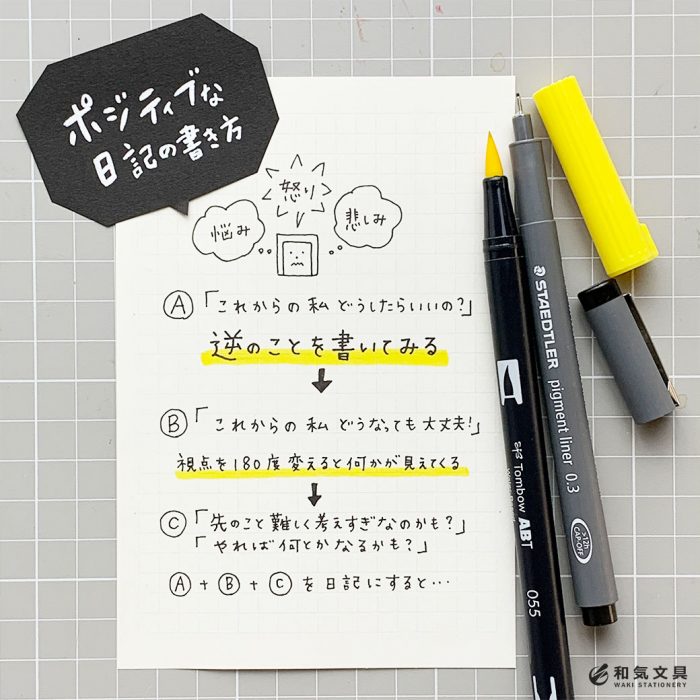 ポジティブな
日記の書き方
怒り
悩み
悲しみ
Ⓐ「これからの私 どうしたらいいの?」
逆のことを書いてみる
↓
Ⓑ「これからの私 どうなっても大丈夫!」
視点を180度変えると何かが見えてくる
↓
Ⓒ「先のこと難しく考えすぎなのかも?」
「やれば何とかなるかも?」
Ⓐ+Ⓑ+Ⓒを日記にすると…
Tombow ABT
055
STAEDTLER pigment liner 0.3
>12h
CAP-OFF
和気文具
WAKI STATIONERY